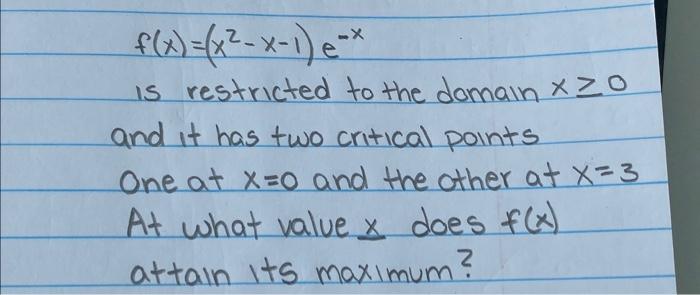 f(x)=(x²-x-1) e⁻ˣ
is restricted to the domain x≥0
and it has two critical points
One at x=0 and the other at x=3
At what value x does f(x)
attain its maximum?